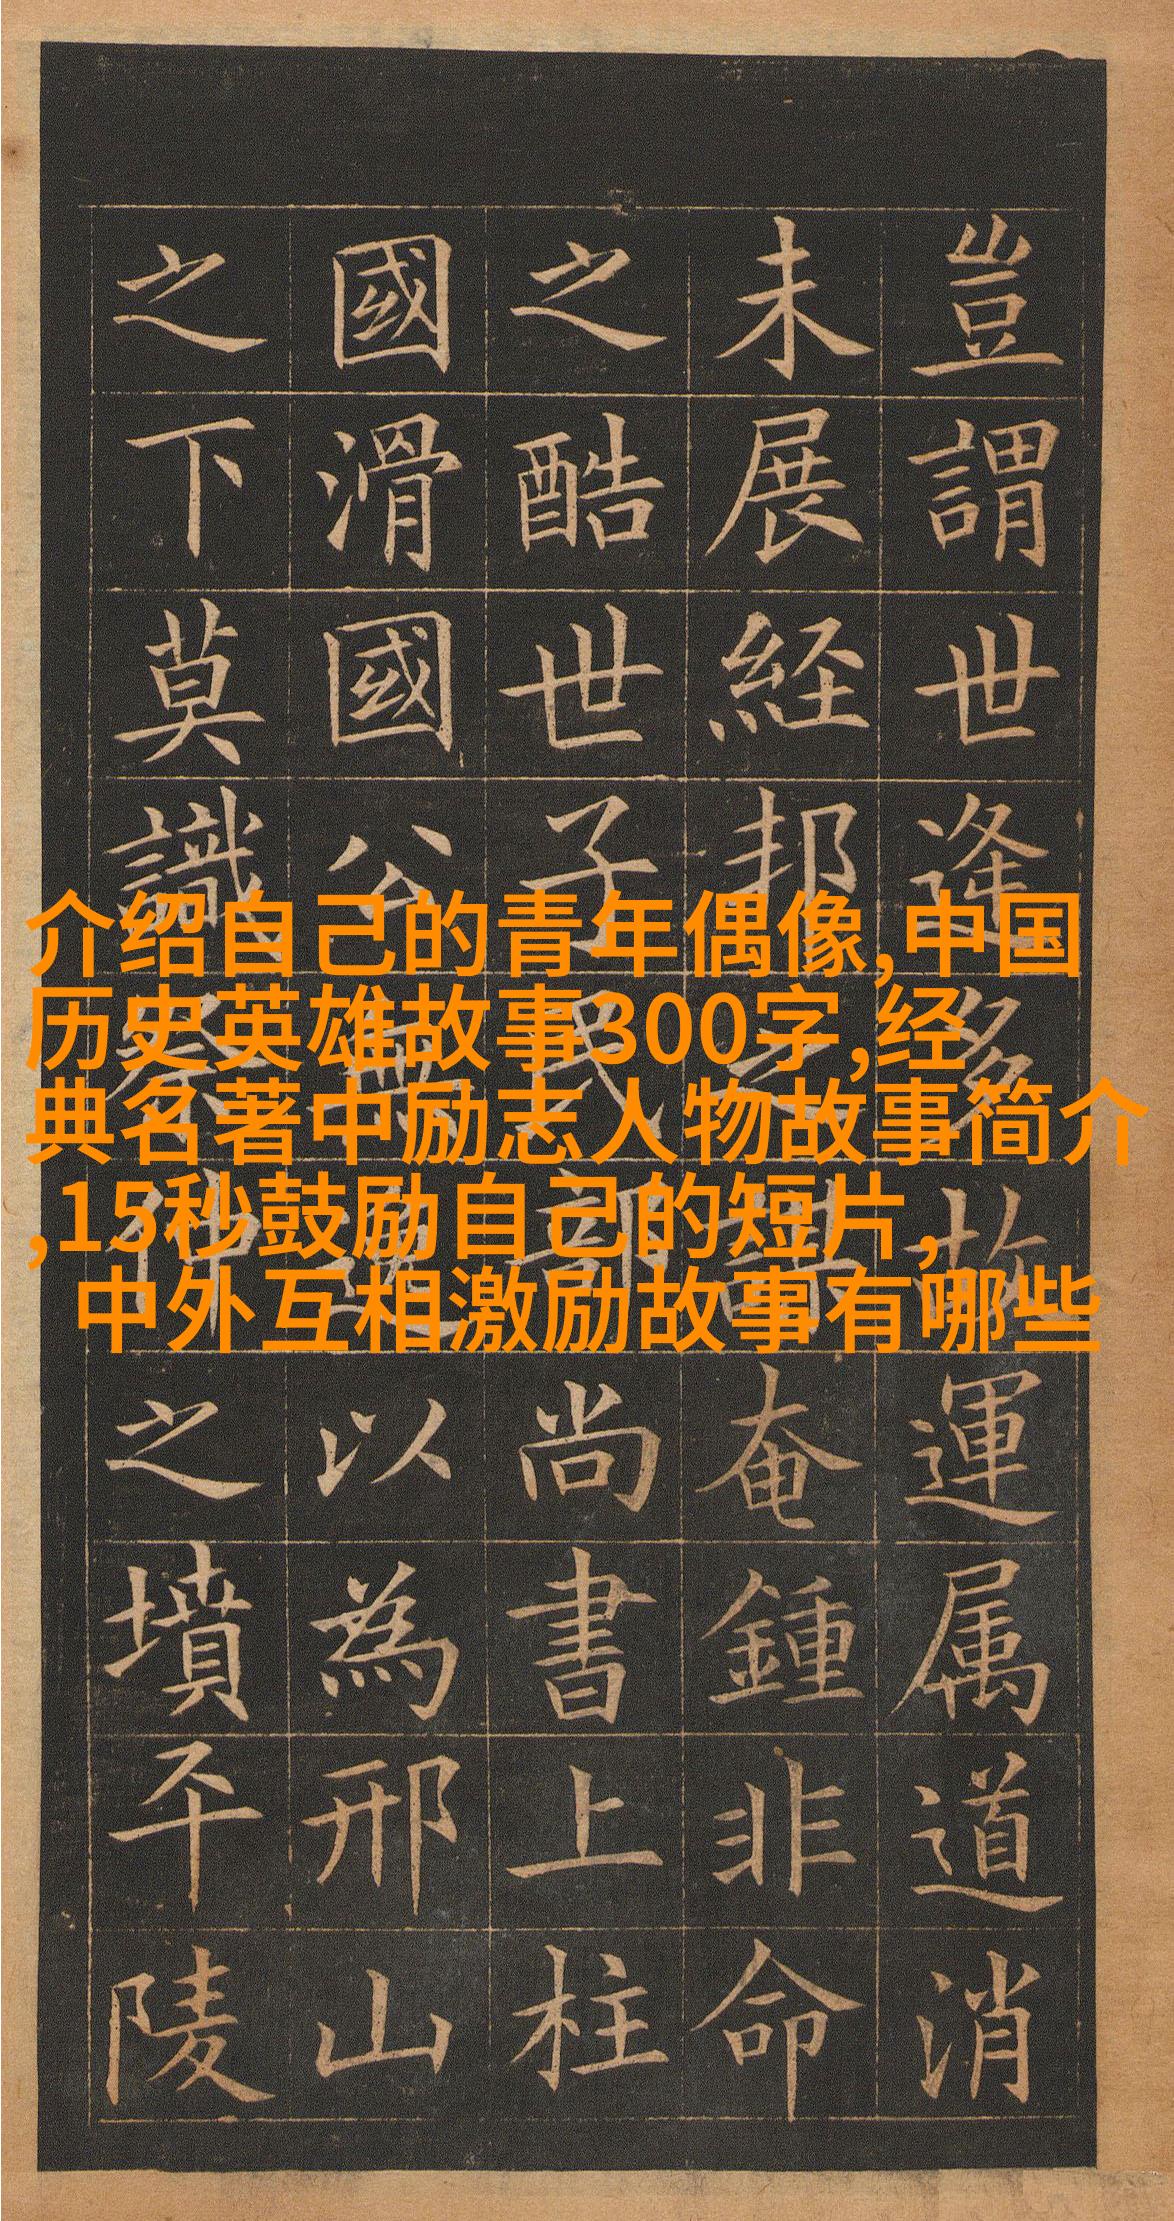 豈謂世逢多故運属道消
未展経邦之謀奄鍾非命
之酷世子民部尚書上柱
國滑國公無逸以為邢山
之下莫識祭仲之墳平陵
介绍自己的青年偶像,中国
历史英雄故事300字,经
典名著中励志人物故事简介
,15秒鼓励自己的短片,
中外互相激励故事有哪些